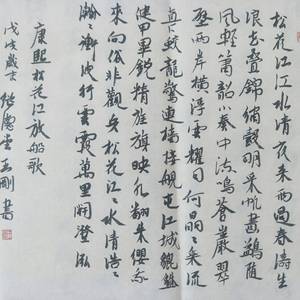 松花江江水清夜来雨過春濤生
浪花疊錦繡縠明采帆畫鷁随
風輕簫韶小奏中流鳴蒼巖翠
壁两岸横浮雲耀日何晶晶乘流
直下蛟龍驚連檣接艦屯江城貔貅
健甲畢銳精旌旗映水翻朱纓我
来問俗非觀兵松花江江水清浩浩
瀚瀚衝波行雲霞萬里開澄泓
康熙松花江放船歌
戊戌歲 王剛書